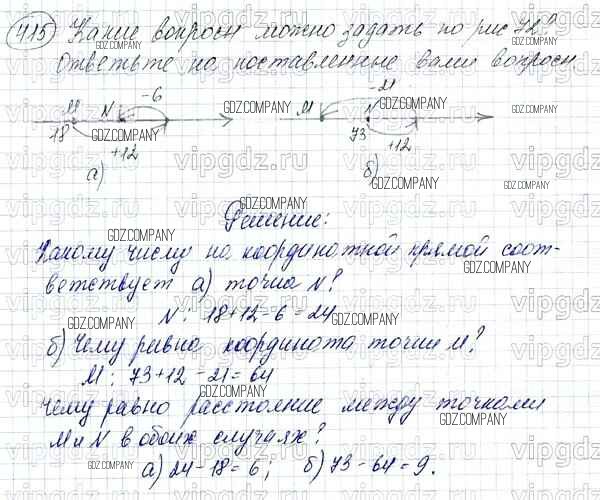 415 Какие вопросы можно задать по рис 72?
Ответьте на поставленные вами вопросы
M N -6
18 +12
а)
M -21 N
73 +12
б)
Решение:
Какому числу на координатной прямой соот-
ветствует а) точка N?
N: 18+12-6=24
б) Чему равна координата точки M?
M: 73+12-21=64
Чему равно расстояние между точками
M и N в обоих случаях?
а) 24-18=6; б) 73-64=9.
GDZ.COMPANY
vipgdz.ru